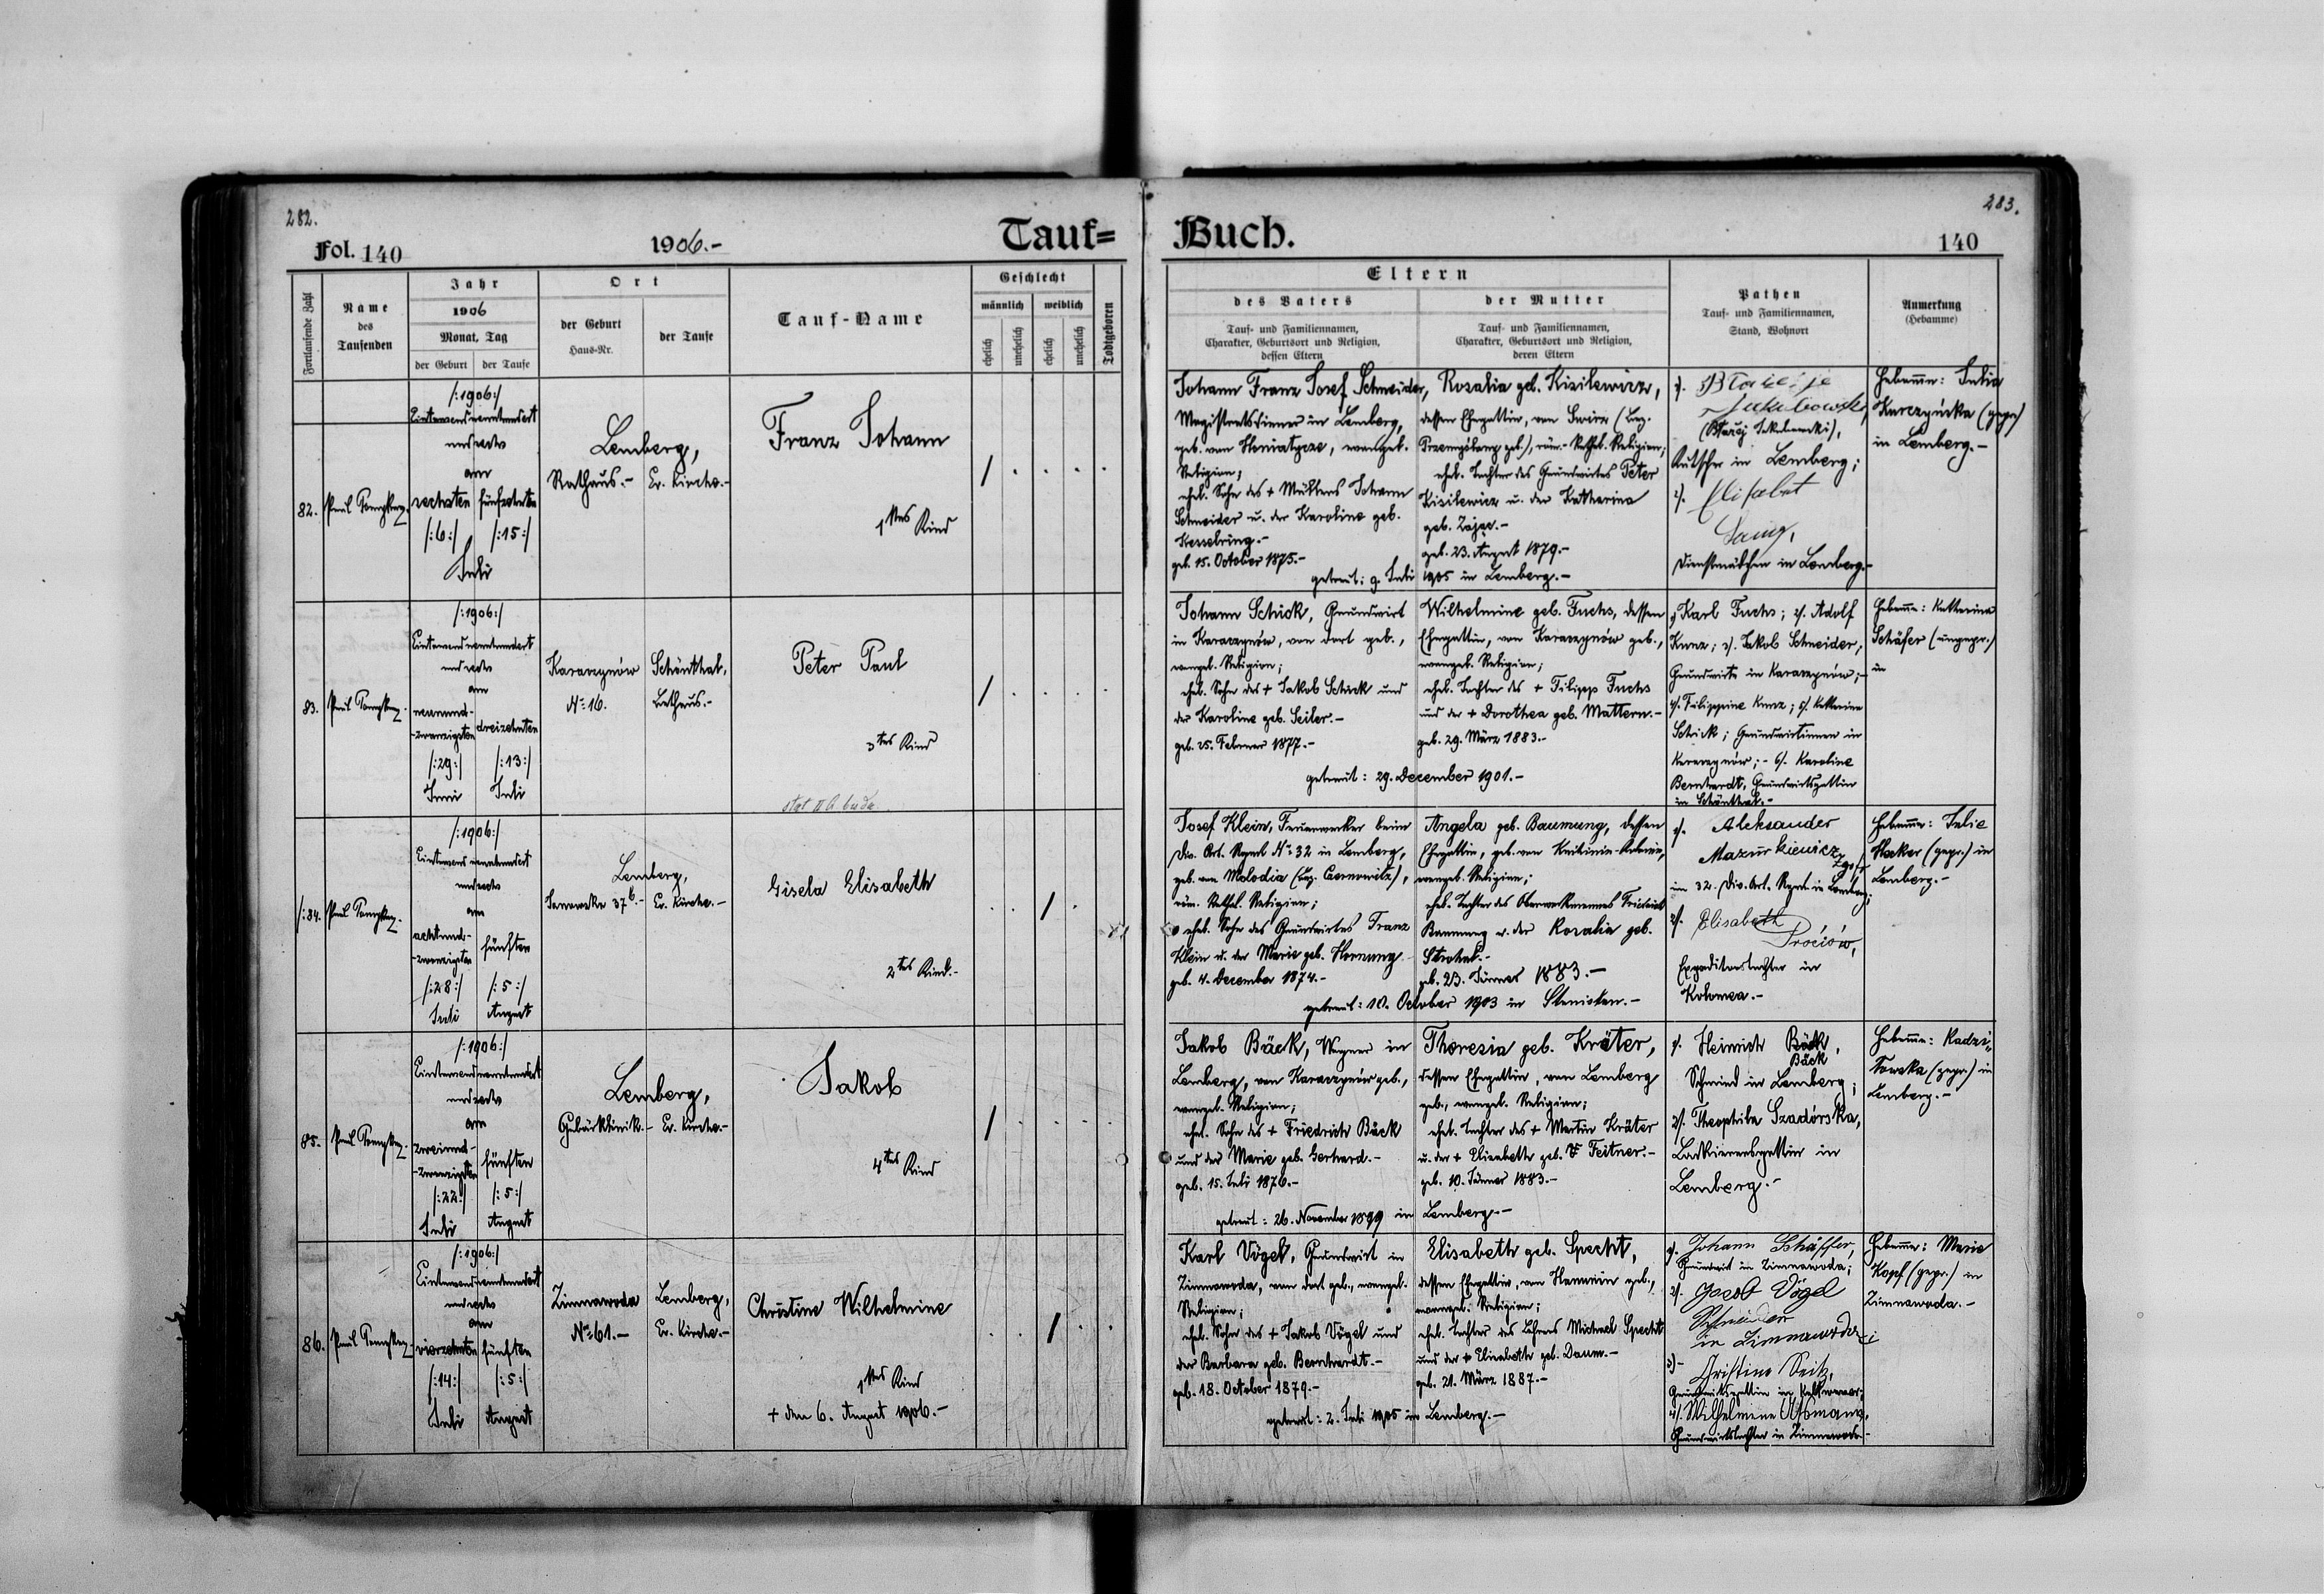 282.
Fol. 140
1906.-
Tauf=
Fortlaufende Zahl
Name
des
Taufenden
Jahr
1906
Monat, Tag
der Geburt
der Taufe
Ort
der Geburt
Haus-Nr.
der Taufe
Tauf-Name
Geschlecht
männlich
weiblich
ehelich
unehelich
ehelich
unehelich
Todtgeboren
82.
/:1906:/
Eintausendneunhundert
undsechs
am
sechsten
fünfzehnten
/:6:/
/:15:/
Juli
Lemberg,
Rathaus.-
Ev. Kirche.-
Franz Johann
1tes Kind
83.
/:1906:/
Eintausendneunhundert
und sechs
am
neunund-
-zwanzigsten
dreizehnten
/:29:/
/:13:/
Juni
Juli
Karaczynów
Schönthal,
No 16.
Bethaus.-
Peter Paul
3tes Kind
/:84.
/:1906:/
Eintausendneunhundert
undsechs
am
achtund-
-zwanzigsten
fünften
/:28:/
/:5:/
Juli
August
Lemberg,
Janowska 37b.-
Ev. Kirche.-
Gisela Elisabeth
2tes Kind.-
85.
/:1906:/
Eintausendneunhundert
undsechs
am
zweiund-
-zwanzigsten
fünften
/:22:/
/:5:/
Juli
August
Lemberg,
Gebärklinik.-
Ev. Kirche.-
Jakob
4tes Kind
86.
/:1906:/
Eintausendneunhundert
undsechs
am
vierzehnten
fünften
/:14:/
/:5:/
Juli
August
Zimnawoda
Lemberg,
No 61.-
Ev. Kirche.-
Christine Wilhelmine
1tes Kind
+ den 6. August 1906.-
283.
Buch.
140
Eltern
des Vaters
Tauf- und Familiennamen,
Charakter, Geburtsort und Religion,
dessen Eltern
der Mutter
Tauf- und Familiennamen,
Charakter, Geburtsort und Religion,
deren Eltern
Pathen
Tauf- und Familiennamen,
Stand, Wohnort
Anmerkung
(Hebamme)
Johann Franz Josef Schneider,
Magistratsdiener in Lemberg,
geb. von evangel.
Religion;
ehel. Sohn des + Müllers Johann
Schneider u. der Karoline geb.
Kesselring.-
geb. 15. October 1875.-
Rosalia geb. Kisilewicz,
dessen Ehegattin, von Swirz (Bez.
Przemyślany geb.), röm.-kathol. Religion;
ehel. Tochter des Grundwirtes Peter
Kisilewicz u. der Katharina
geb. Zając.-
geb. 23. August 1879.-
getraut: 9. Juli 1905 in Lemberg.-
1).
Kutscher in Lemberg;
2). Elisabet
Dienstmädchen in Lemberg.-
Hebamme: Julia
(gepr.)
in Lemberg.-
Johann Schick, Grundwirt
in Karaczynów, von dort geb.,
evangel. Religion;
ehel. Sohn des + Jakob Schick und
der Karoline geb. Seiler.-
geb. 25. Februar 1877.-
Wilhelmine geb. Fuchs, dessen
Ehegattin, von Karaczynów geb.,
evangel. Religion;
ehel. Tochter des + Filipp Fuchs
und der + Dorothea geb. Mattern.-
geb. 29. März 1883.-
getraut: 29. December 1901.-
1). Karl Fuchs; 2). Adolf
Kunz; 3). Jakob Schneider,
Grundwirte in Karaczynów;-
4). Filippine Kunz; 5). Katharina
Schick; Grundwirtinnen in
Karaczynów;- 6). Karoline
Bernhardt, Grundwirtsgattin
in Schönthal.-
Hebamme: Katharina
Schäfer (ungepr.)
in
Josef Klein, Feuerwerker beim
Div. Art. Regmt No 32 in Lemberg,
geb. von Molodia (Bez. Czernowitz),
röm. kathol. Religion;
ehel. Sohn des Grundwirtes Franz
Klein u. der Marie geb. Hornung
geb. 4. December 1874.-
Angela geb. Baumung, dessen
Ehegattin, geb. von
evangel. Religion;
ehel. Tochter des Friedrich
Baumung u. der Rosalia geb.
geb. 23. Jänner 1883.-
getraut: 10. October 1903 in
1). Aleksander
Mazurkiewicz
im 32. Div. Art. Regmt in Lemberg;
2). Elisabeth
Prociów,
Expeditorstochter in
Kolomea.-
Hebamme: Julie
(gepr.) in
Lemberg.-
Jakob Bäck, Wagner in
Lemberg, von Karaczynów geb.,
evangel. Religion;
ehel. Sohn des + Friedrich Bäck
und der Marie geb. Gerhard.-
geb. 15. Juli 1876.-
Theresia geb. Kräter,
dessen Ehegattin, von Lemberg
geb., evangel. Religion;
ehel. Tochter des + Martin Kräter
u. der + Elisabeth geb. Feitner.-
geb. 10. Jänner 1883.-
getraut: 26. November 1899 in Lemberg.-
1). Heinrich Bäck,
Bäck
Schmied in Lemberg;
2). Theophila Szadórska,
Lackierersgattin in
Lemberg.-
Hebamme: Radzi-
(gepr.) in
Lemberg.-
Karl Vögel, Grundwirt in
Zimnawoda, von dort geb., evangel.
Religion;
ehel. Sohn des + Jakob Vögel und
der Barbara geb. Bernhardt.-
geb. 18. October 1879.-
Elisabeth geb. Specht,
dessen Ehegattin, von geb.,
evangel. Religion;
ehel. Tochter des Lehrers Michael Specht
und der + Elisabeth geb. Daum.-
geb. 21. März 1887.-
getraut: 2. Juli 1905 in Lemberg.-
1). Johann Schäffer,
Grundwirt in Zimnawoda;
2). Jacob Vögel
Schneider
in Zimnawoda;
3)- Christine Seitz,
Grundwirtsgattin in
4). Wilhelmine Assmann,
Grundwirtstochter in Zimnawoda.-
Hebamme: Marie
Kopf (gepr.) in
Zimnawoda.-